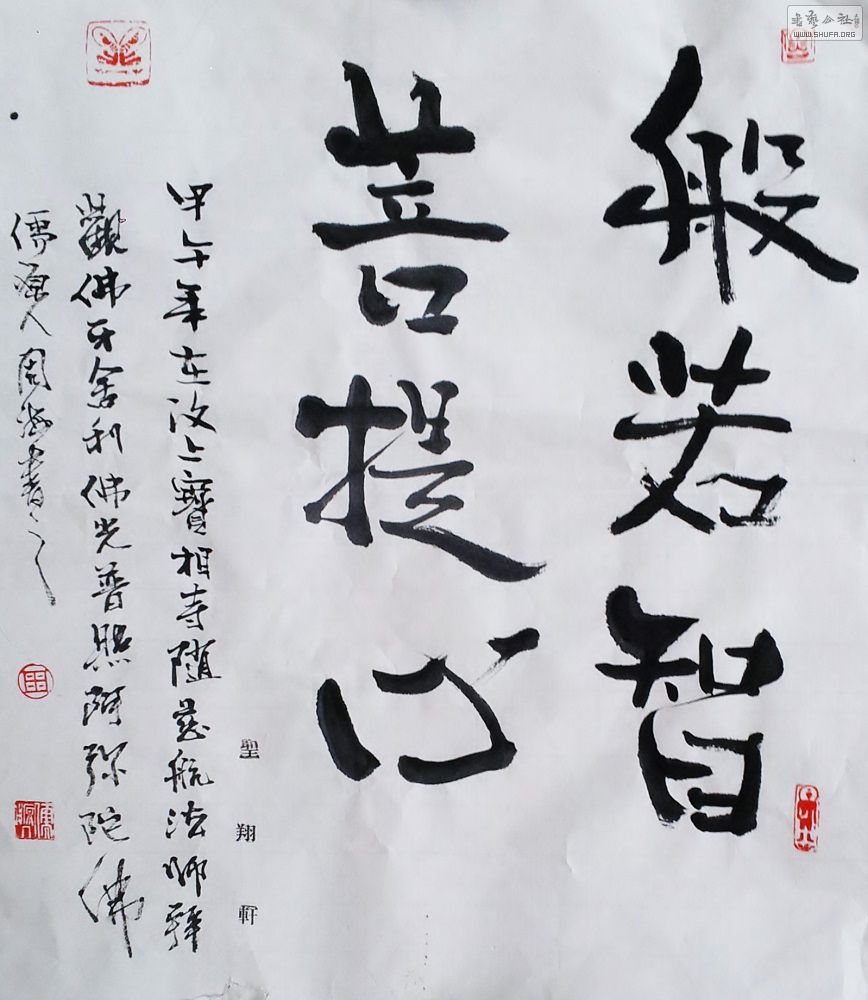 般若智
菩提心
甲午年在汶上寶相寺隨慈航法师拜
觀佛牙舍利佛光普照阿弥陀佛
儒源人周海書之
聖翔軒
書藝公社
WWW.SHUFA.ORG